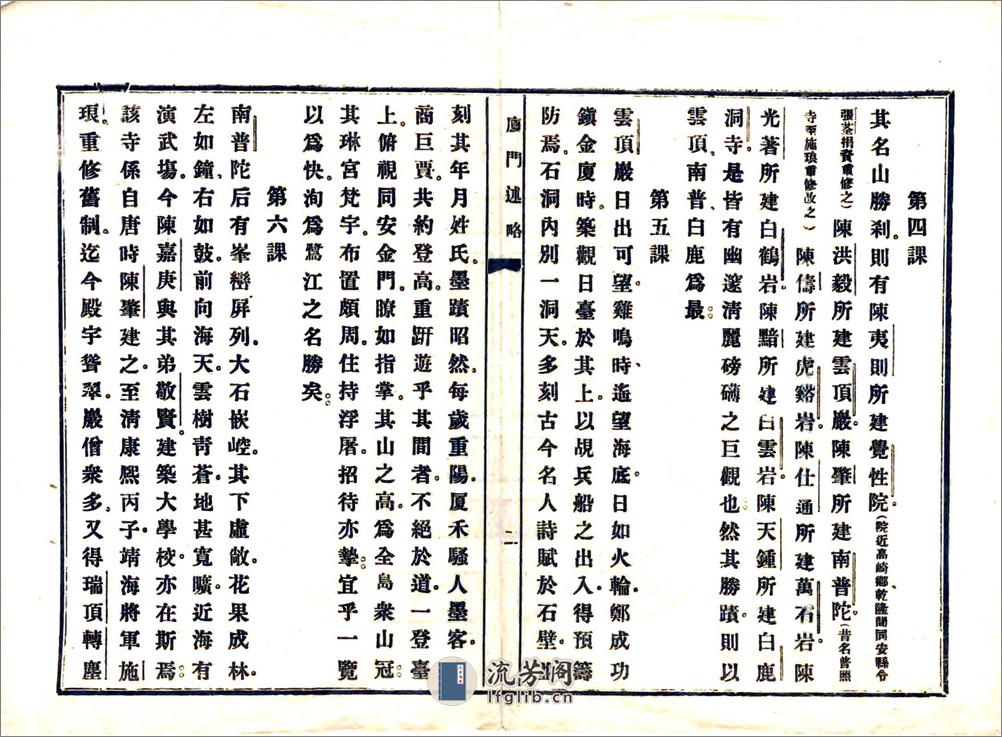 第四課
其名山勝刹則有陳夷則所建覺性院。(院近高崎鄉乾隆間同安縣令
張荃捐資重修之)陳洪毅所建雲頂巖。陳肇所建南普陀。(昔名普照
寺至施琅重修改之)陳儔所建虎谿岩。陳仕通所建萬石岩。陳
光著所建白鶴岩。陳黯所建白雲岩。陳天鍾所建白鹿
洞寺。是皆有幽邃清麗磅礴之巨觀也。然其勝蹟則以
雲頂、南普、白鹿爲最。
第五課
雲頂巖日出可望。雞鳴時、遙望海底。日如火輪。鄭成功
鎮金廈時。築觀日臺於其上。以覘兵船之出入。得預籌
防焉。石洞內別一洞天。多刻古今名人詩賦於石壁。並
刻其年月姓氏。墨蹟昭然。每歲重陽。厦禾騷人墨客。
商巨賈。共約登高。重遊乎其間者。不絕於道。一登臺
上。俯視同安金門。瞭如指掌。其山之高。爲全島衆山冠。
其琳宮梵宇。布置頗周。住持浮屠。招待亦摯。宜乎一覽
以爲快。洵爲鷺江之名勝矣。
第六課
南普陀后有峯巒屏列。大石嵌崆。其下虛敞。花果成林。
左如鐘、右如鼓。前向海天。雲樹靑蒼。地甚寬曠。近海有
演武塲。今陳嘉庚與其弟敬賢。建築大學校。亦在斯焉。
該寺係自唐時陳肇建之。至清康熙丙子。靖海將軍施
琅。重修舊制。迄今殿宇聳翠。巖僧衆多。又得瑞頂轉塵
廈門述略
二
流芳阁
lfglib.cn